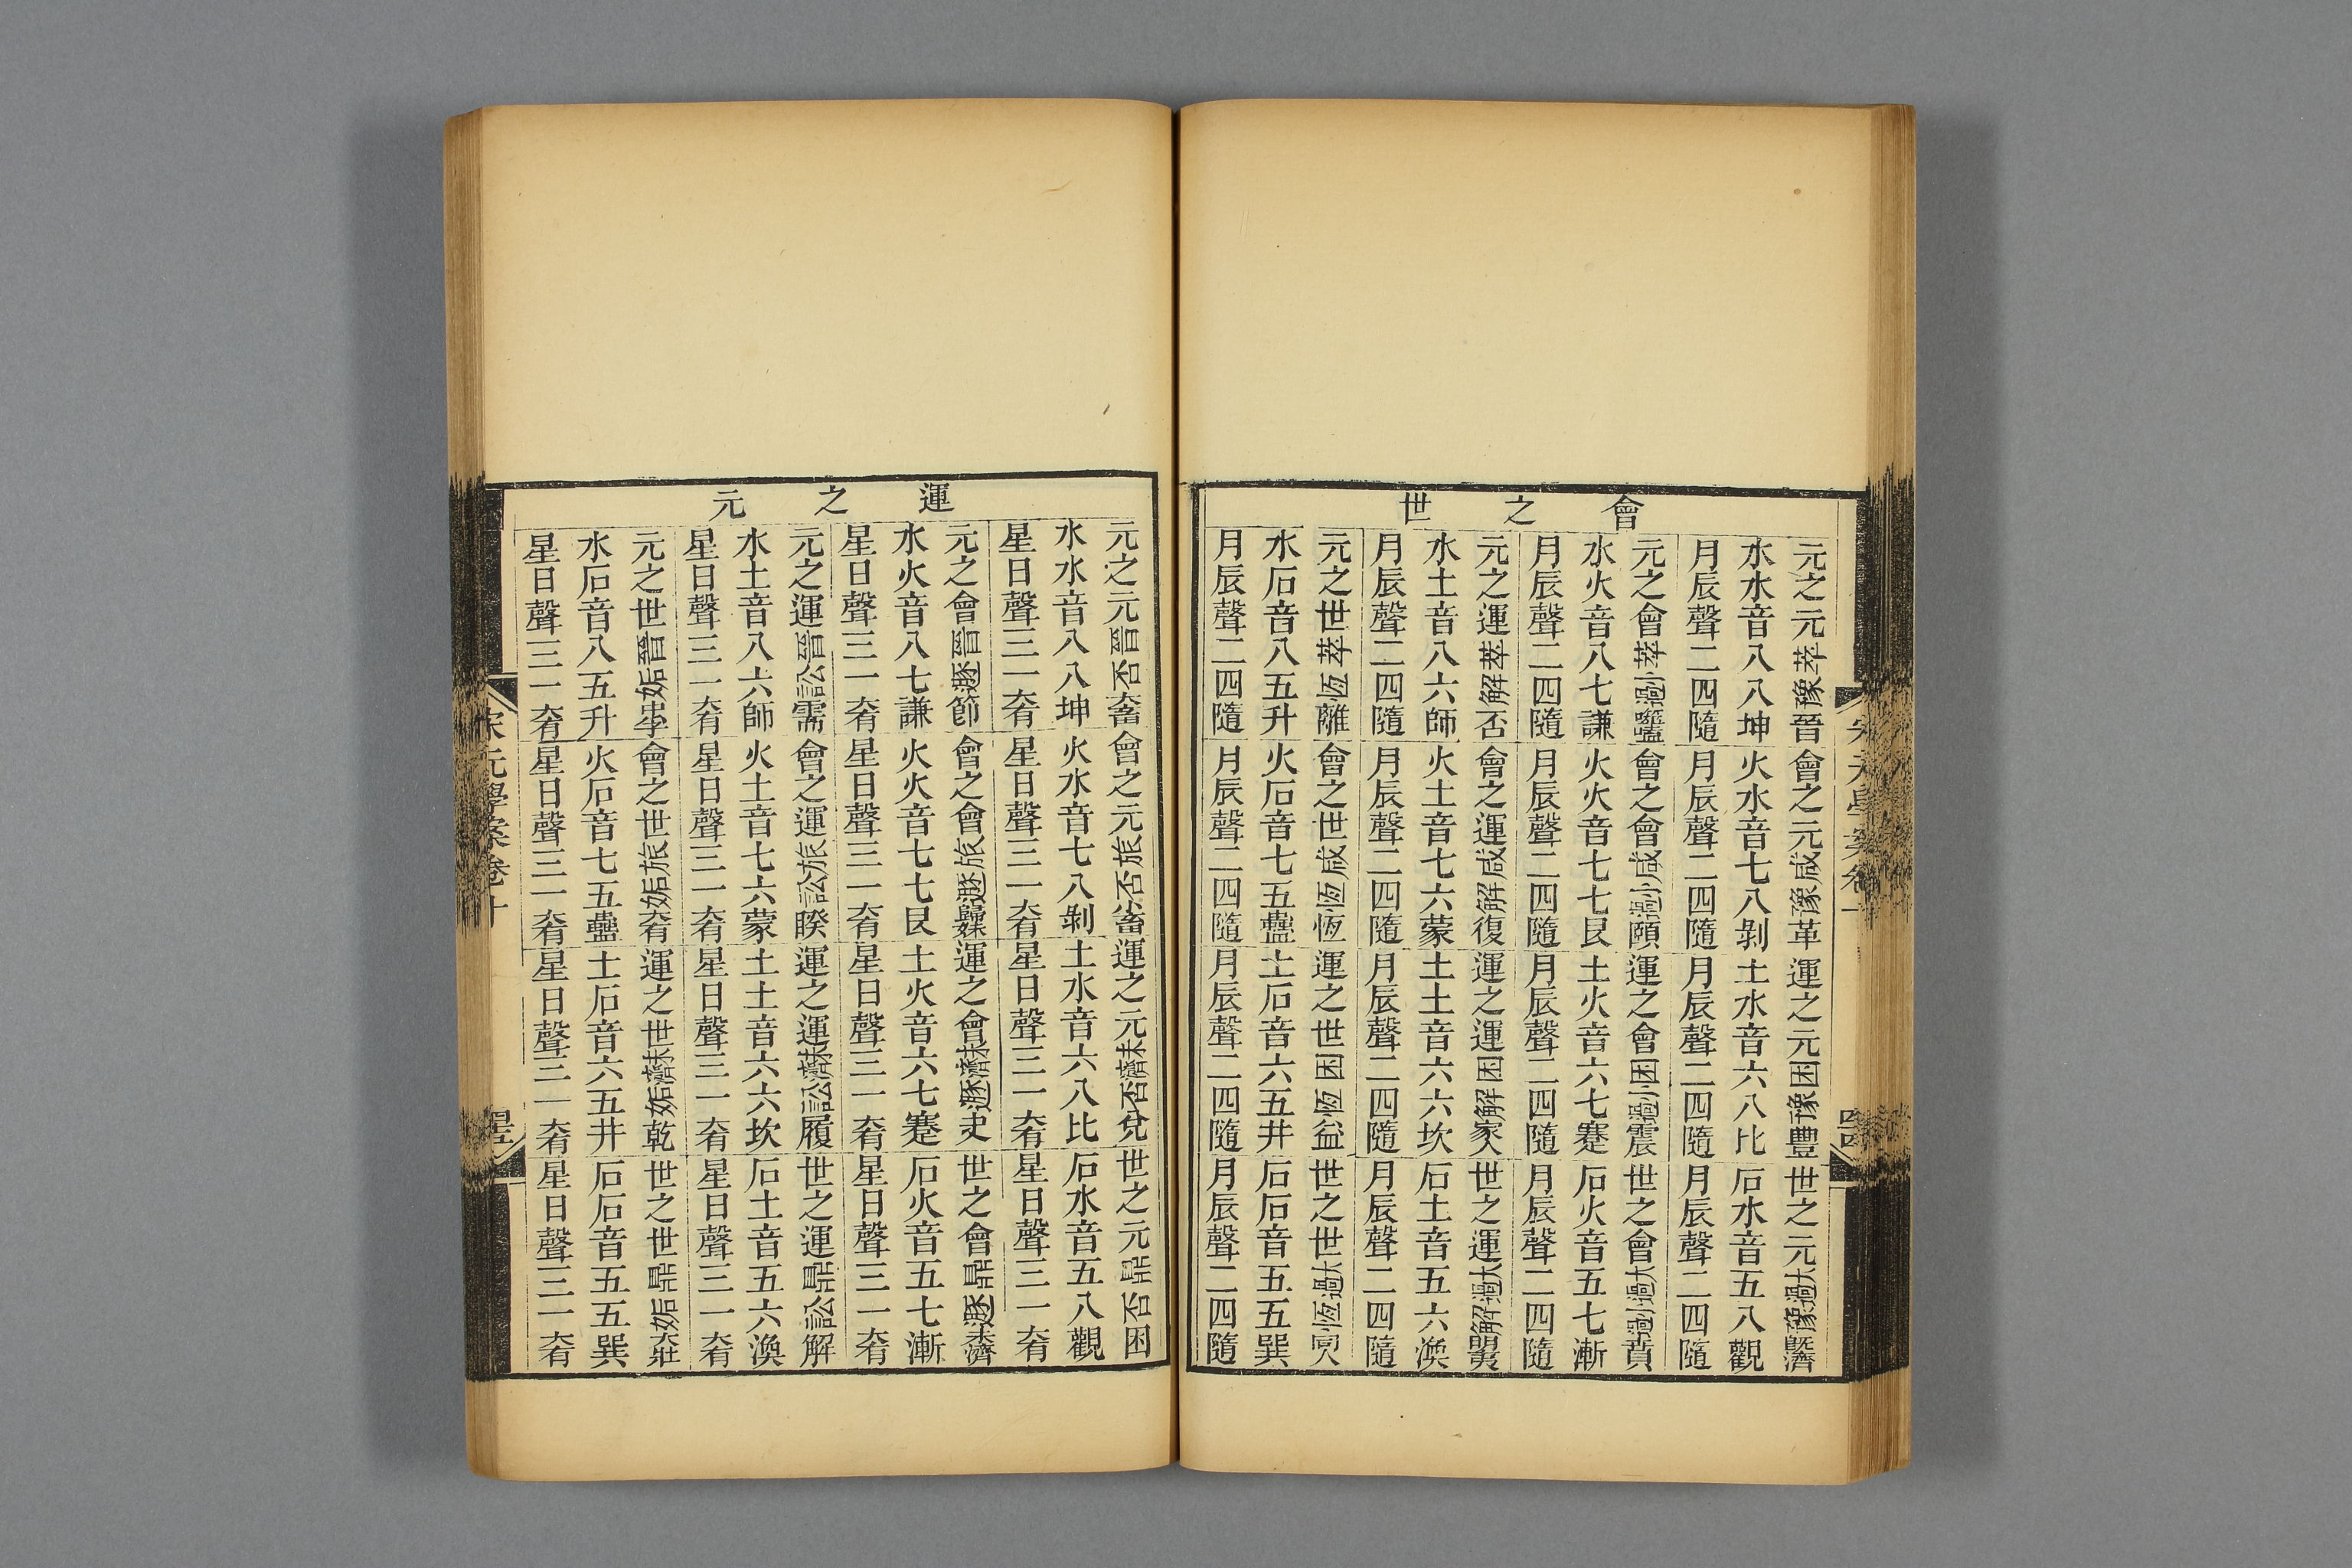 會之世
元之元萃豫晉會之元咸豫革運之元困豫豐世之元大過豫旣濟
水水音八八坤火水音七八剝土水音六八比石水音五八觀
月辰聲二四隨月辰聲二四隨月辰聲二四隨月辰聲二四隨
元之會萃小過噬嗑會之會咸小過頤運之會困小過震世之會大過小過賁
水火音八七謙火火音七七艮土火音六七蹇石火音五七漸
月辰聲二四隨月辰聲二四隨月辰聲二四隨月辰聲二四隨
元之運萃解否會之運咸解復運之運困解家人世之運大過解明夷
水土音八六師火土音七六蒙土土音六六坎石土音五六渙
月辰聲二四隨月辰聲二四隨月辰聲二四隨月辰聲二四隨
元之世萃恆離會之世咸恆恆運之世困恆益世之世大過恆同人
水石音八五升火石音七五蠱土石音六五井石石音五五巽
月辰聲二四隨月辰聲二四隨月辰聲二四隨月辰聲二四隨
運之元
元之元晉否大畜會之元旅否小畜運之元未濟否兌世之元鼎否困
水水音八八坤火水音七八剝土水音六八比石水音五八觀
星日聲三一大有星日聲三一大有星日聲三一大有星日聲三一大有
元之會晉遯節會之會旅遯歸妹運之會未濟遯夬世之會鼎遯未濟
水火音八七謙火火音七七艮土火音六七蹇石火音五七漸
星日聲三一大有星日聲三一大有星日聲三一大有星日聲三一大有
元之運晉訟需會之運旅訟睽運之運未濟訟履世之運鼎訟解
水土音八六師火土音七六蒙土土音六六坎石土音五六渙
星日聲三一大有星日聲三一大有星日聲三一大有星日聲三一大有
元之世晉姤中孚會之世旅姤大有運之世未濟姤乾世之世鼎姤大壯
水石音八五升火石音七五蠱土石音六五井石石音五五巽
星日聲三一大有星日聲三一大有星日聲三一大有星日聲三一大有
宋元學案卷十